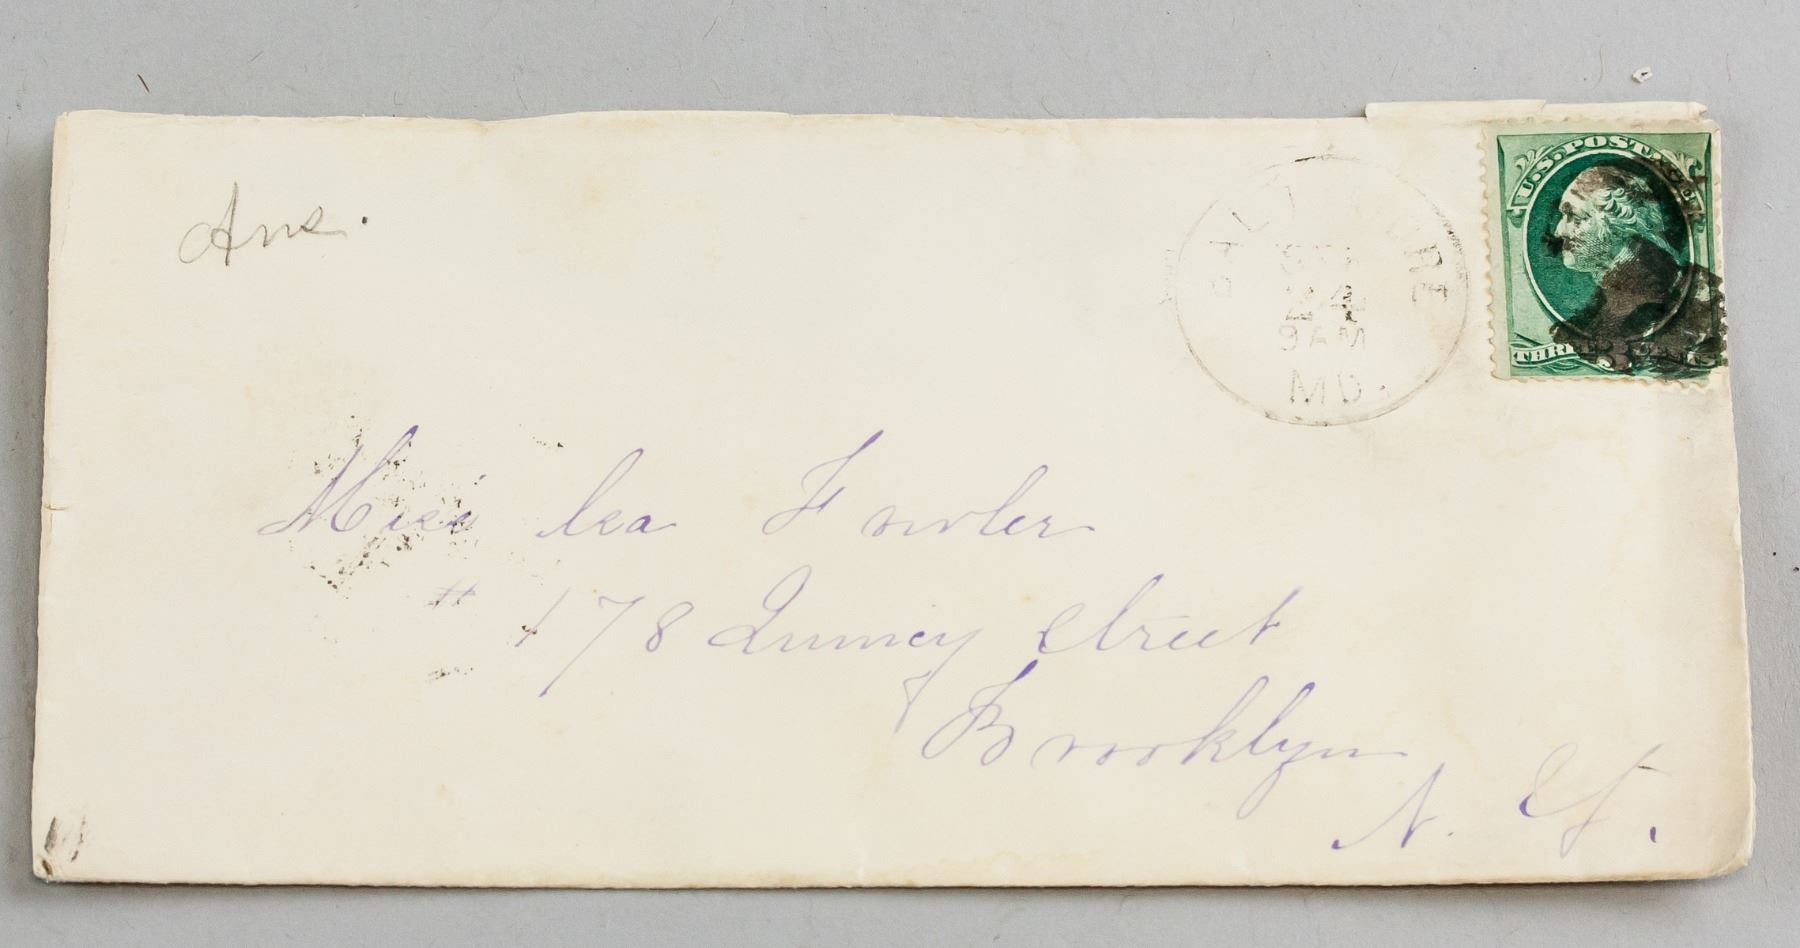 Ans.
BALTIMORE
24
9 AM
MD.
U.S. POSTAGE
THREE 3 CENTS
Miss Isa Fowler
# 178 Quincy Street
Brooklyn
N. Y.